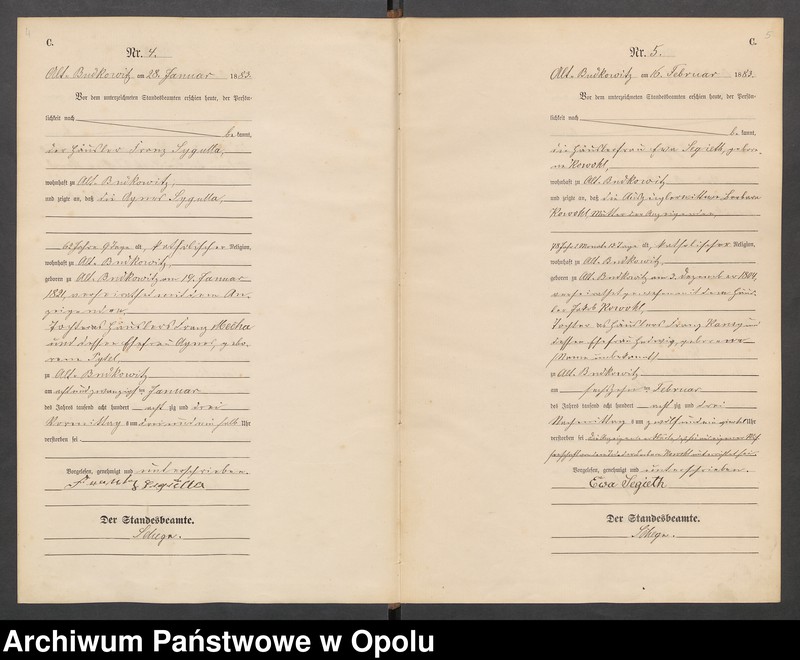 C.
Nr. 4.
Alt-Budkowitz am 28. Januar 1883.
Vor dem unterzeichneten Standesbeamten erschien heute, der Persön-
lichkeit nach
be kannt,
der Häusler Franz Sygulla,
wohnhaft zu Alt-Budkowitz,
und zeigte an, daß die Agnes Sygulla,
62 Jahre 9 Tage alt, katholischer Religion,
wohnhaft zu Alt-Budkowitz,
geboren zu Alt-Budkowitz am 19. Januar
1821, verheirathet mit dem An-
zeigenden
Tochter des Häuslers Franz
und dessen Ehefrau Agnes, gebo-
rene Pytel
zu Alt-Budkowitz
am acht und zwanzigsten Januar
des Jahres tausend acht hundert acht zig und drei
Vormittag s um drei und ein halb Uhr
verstorben sei
Vorgelesen, genehmigt und unterschrieben.
Franz Sygulla
Der Standesbeamte.
C.
Nr. 5.
Alt-Budkowitz am 16. Februar 1883.
Vor dem unterzeichneten Standesbeamten erschien heute, der Persön-
lichkeit nach
be kannt,
die Häuslerfrau Ewa Segieth, gebore-
ne Kowohl,
wohnhaft zu Alt-Budkowitz
und zeigte an, daß die Auszüglerwittwe Barbara
Kowohl, Mutter der Anzeigerin,
78 Jahr 2 Monate 13 Tage alt, katholischer Religion,
wohnhaft zu Alt-Budkowitz,
geboren zu Alt-Budkowitz am 3. Dezember 1804,
verheirathet gewesen mit dem Häus-
ler Jakob Kowohl,
Tochter des Häuslers Franz und
dessen Ehefrau Hedwig, geborene
(Name unbekannt)
zu Alt-Budkowitz
am sechszehnten Februar
des Jahres tausend acht hundert acht zig und drei
Nachmittag s um zwölf und ein viertel Uhr
verstorben sei
Vorgelesen, genehmigt und unterschrieben.
Ewa Segieth
Der Standesbeamte.
Archiwum Państwowe w Opolu